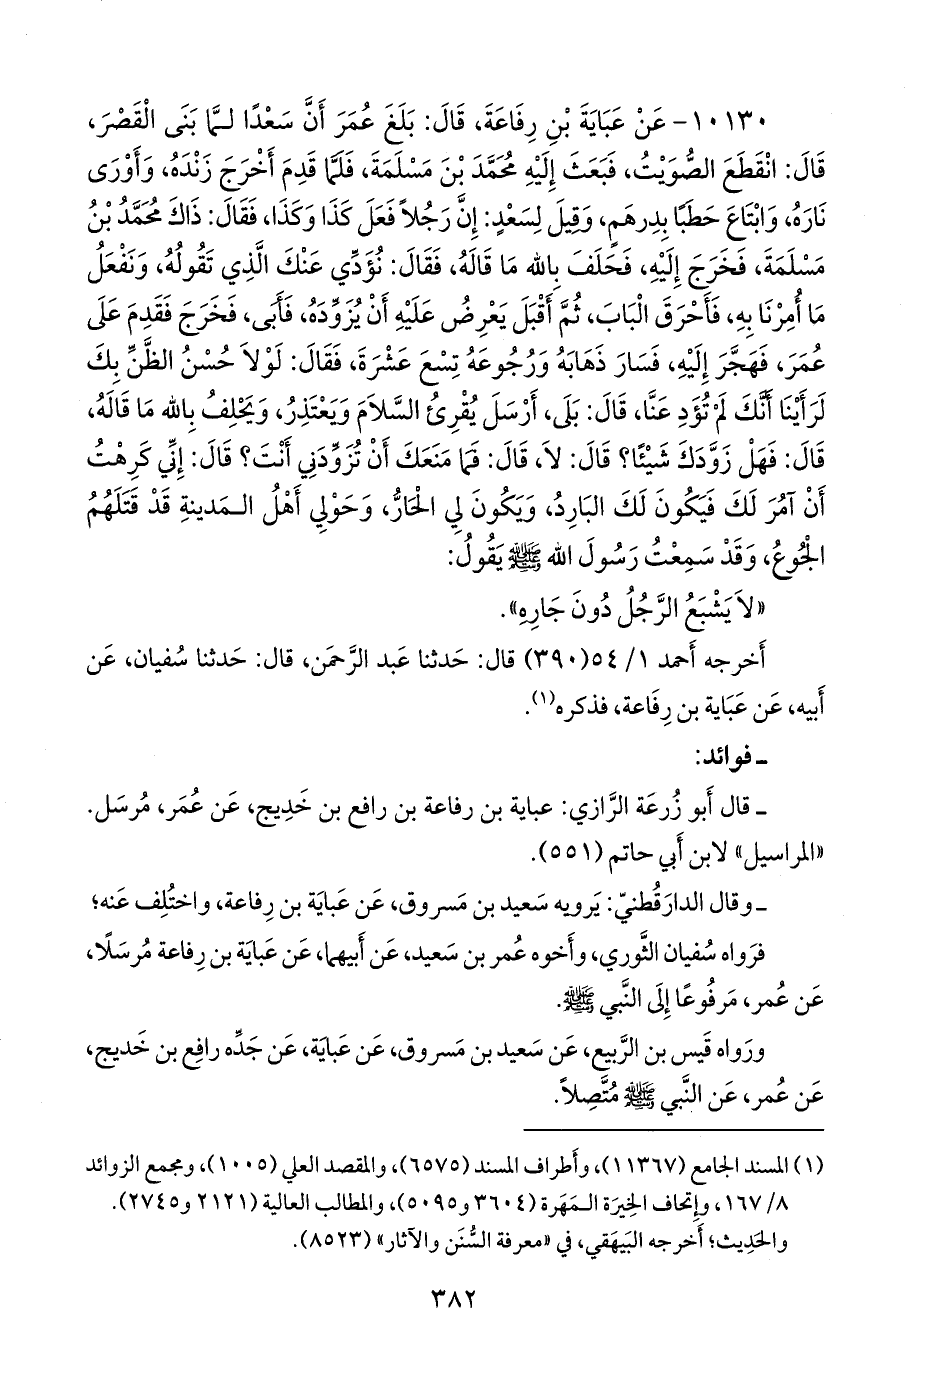 ١٠١٣٠- عَنْ عَبَايَةَ بْنِ رِفَاعَةَ، قَالَ: بَلَغَ عُمَرَ أَنَّ سَعْدًا لَـمَّا بَنَى الْقَصْرَ،
قَالَ: انْقَطَعَ الصُّوَيْتُ، فَبَعَثَ إِلَيْهِ مُحَمَّدَ بْنَ مَسْلَمَةَ، فَلَمَّا قَدِمَ أَخْرَجَ زَنْدَهُ، وَأَوْرَى
نَارَهُ، وَابْتَاعَ حَطَبًا بِدِرهَمٍ، وَقِيلَ لِسَعْدٍ: إِنَّ رَجُلاً فَعَلَ كَذَا وَكَذَا، فَقَالَ: ذَاكَ مُحَمَّدُ بْنُ
مَسْلَمَةَ، فَخَرَجَ إِلَيْهِ، فَحَلَفَ بِالله مَا قَالَهُ، فَقَالَ: نُؤَدِّي عَنْكَ الَّذِي تَقُولُهُ، وَنَفْعَلُ
مَا أُمِرْنَا بِهِ، فَأَحْرَقَ الْبَابَ، ثُمَّ أَقْبَلَ يَعْرِضُ عَلَيْهِ أَنْ يُزَوِّدَهُ، فَأَبَى، فَخَرَجَ فَقَدِمَ عَلَى
عُمَرَ، فَهَجَّرَ إِلَيْهِ، فَسَارَ ذَهَابَهُ وَرُجُوعَهُ تِسْعَ عَشْرَةَ، فَقَالَ: لَوْلاَ حُسْنُ الظَّنِّ بِكَ
لَرَأَيْنَا أَنَّكَ لَمْ تُؤَدِ عَنَّا، قَالَ: بَلَى، أَرْسَلَ يُقْرِئُ السَّلاَمَ وَيَعْتَذِرُ، وَيَحْلِفُ بِالله مَا قَالَهُ،
قَالَ: فَهَلْ زَوَّدَكَ شَيْئًا؟ قَالَ: لاَ، قَالَ: فَمَا مَنَعَكَ أَنْ تُزَوِّدَنِي أَنْتَ؟ قَالَ: إِنِّي كَرِهْتُ
أَنْ آمُرَ لَكَ فَيَكُونَ لَكَ البَارِدُ، وَيَكُونَ لِي الحَارُّ، وَحَوْلِي أَهْلُ الـمَدينةِ قَدْ قَتَلَهُمُ
الْجُوعُ، وَقَدْ سَمِعْتُ رَسُولَ الله ﷺ يَقُولُ:
«لاَ يَشْبَعُ الرَّجُلُ دُونَ جَارِهِ».
أَخرجه أَحمد ١/ ٥٤(٣٩٠) قال: حَدثنا عَبد الرَّحمَن، قال: حَدثنا سُفيان، عَن
أَبيه، عَن عَبَاية بن رِفَاعة، فذكره(١).
ـ فوائد:
ـ قال أَبو زُرعَة الرَّازي: عباية بن رفاعة بن رافع بن خَدِيج، عَن عُمَر، مُرسَل.
«المراسيل» لابن أَبي حاتم (٥٥١).
ـ وقال الدارَقُطنيّ: يَرويه سَعيد بن مَسروق، عَن عَبايَة بن رِفاعة، واختُلِف عَنه؛
فرَواه سُفيان الثَّوري، وأَخوه عُمر بن سَعيد، عَن أَبيهما، عَن عَبايَة بن رِفاعة مُرسَلًا،
عَن عُمر، مَرفُوعًا إِلَى النَّبي ﷺ.
ورَواه قَيس بن الرَّبيع، عَن سَعيد بن مَسروق، عَن عَبايَة، عَن جَدِّه رافِع بن خَديج،
عَن عُمر، عَن النَّبي ﷺ مُتَّصِلاً.
(١) المسند الجامع (١١٣٦٧)، وأَطراف المسند (٦٥٧٥)، والمقصد العلي (١٠٠٥)، ومجمع الزوائد
٨/ ١٦٧، وإِتحاف الخِيرَة الـمَهَرة (٣٦٠٤ و٥٠٩٥)، والمطالب العالية (٢١٢١ و٢٧٤٥).
والحَدِيث؛ أَخرجه البَيهَقي، في «معرفة السُّنَن والآثار» (٨٥٢٣).
٣٨٢